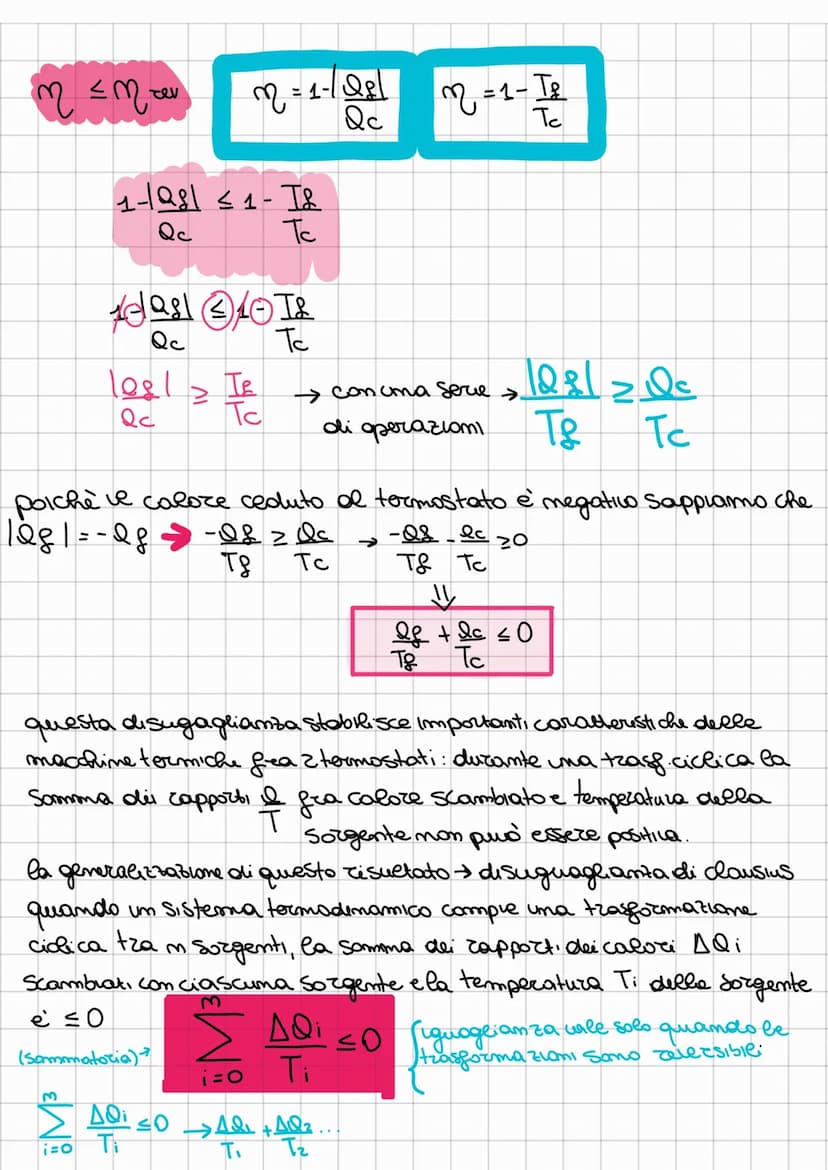 η ≤ η rev   η = 1 - |Qf| / Qc   η = 1 - Tf / Tc
1 - |Qf| / Qc ≤ 1 - Tf / Tc
1 - |Qf| / Qc ≤ 1 - Tf / Tc
|Qf| / Qc ≥ Tf / Tc → con una serie di operazioni → |Qf| / Tf ≥ Qc / Tc
poichè il calore ceduto al termostato è negativo sappiamo che
|Qf| = -Qf → -Qf / Tf ≥ Qc / Tc → -Qf / Tf - Qc / Tc ≥ 0
⇓
Qf / Tf + Qc / Tc ≤ 0
questa disugaglianza stabilisce importanti caratteristiche delle
macchine termiche fra 2 termostati: durante una trasf. ciclica la
somma dei rapporti Q / T fra calore scambiato e temperatura della
sorgente non può essere positiva.
la generalizzazione di questo risultato → disuguaglianza di clausius
quando un sistema termodinamico compie una trasformazione
ciclica tra n sorgenti, la somma dei rapporti dei calori ΔQi
scambiati con ciascuna sorgente e la temperatura Ti della sorgente
è ≤ 0
(sommatoria)→ n Σ i=0 ΔQi / Ti ≤ 0 { uguaglianza vale solo quando le
trasformazioni sono reversibili
n Σ i=0 ΔQi / Ti ≤ 0 → ΔQ1 / T1 + ΔQ2 / T2 ...